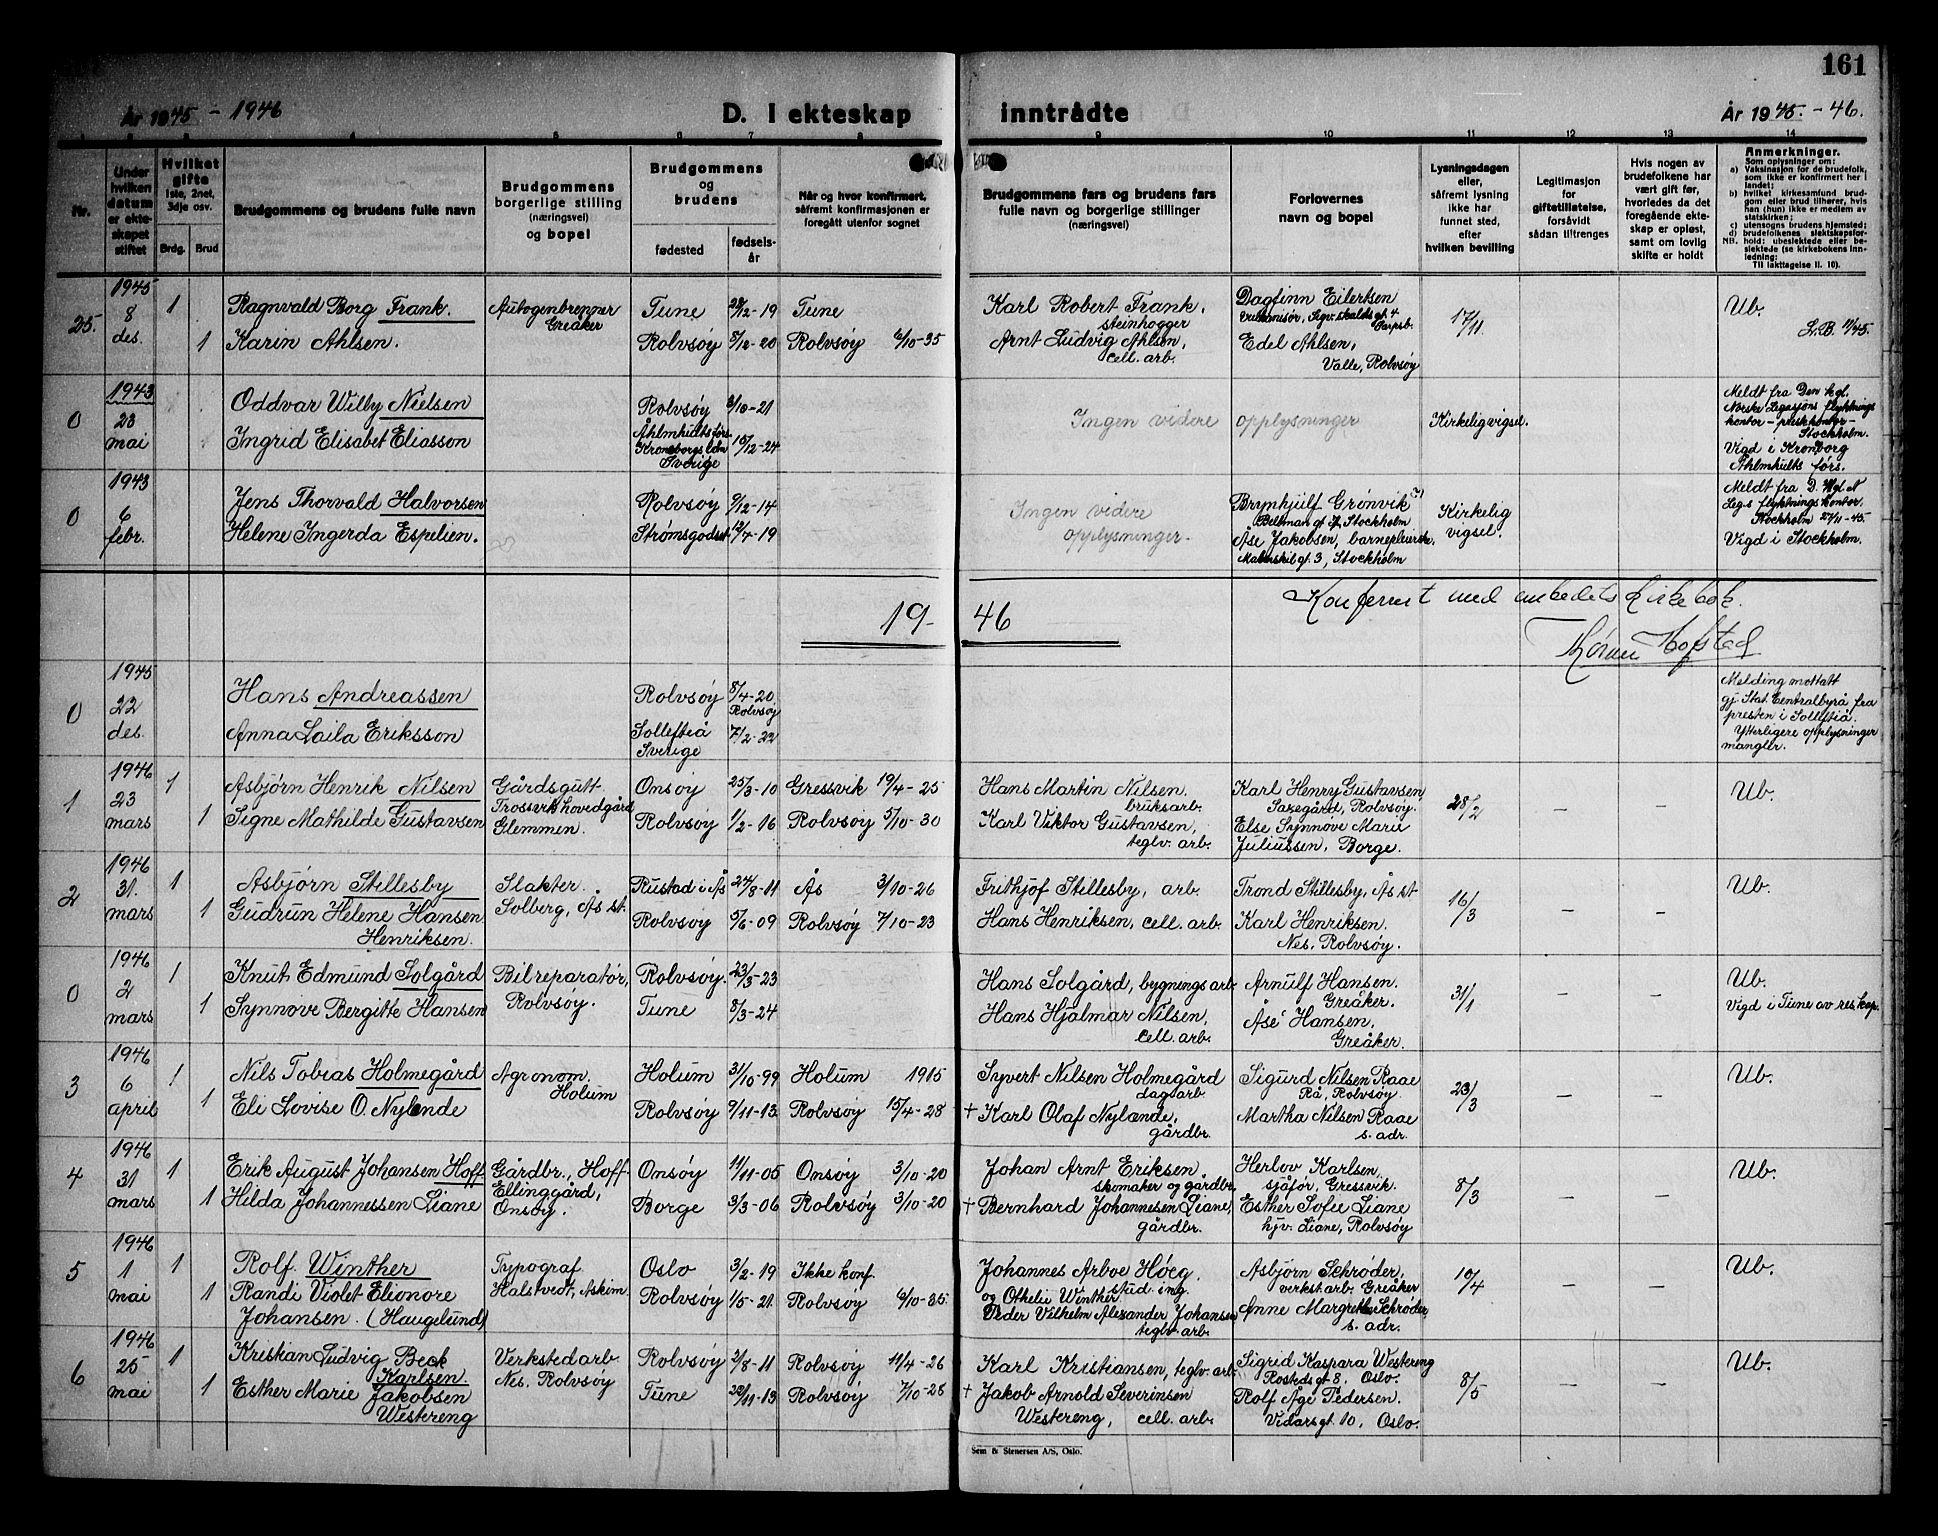 161
År 1945 - 1946
D. I ekteskap inntrådte
År 1945. - 46.
1 2 3 4 5 6 7 8 9 10 11 12 13 14
Nr.
Under hvilken datum er ekteskapet stiftet
Hvilket gifte
1ste, 2net, 3dje osv.
Brdg. Brud
Brudgommens og brudens fulle navn
Brudgommens borgerlige stilling (næringsvei) og bopel
Brudgommens og brudens
fødested
fødselsår
Når og hvor konfirmert, såfremt konfirmasjonen er foregått utenfor sognet
Brudgommens fars og brudens fars fulle navn og borgerlige stillinger (næringsvei)
Forlovernes navn og bopel
Lysningsdagen eller, såfremt lysning ikke har funnet sted, efter hvilken bevilling
Legitimasjon for giftetillatelse, forsåvidt sådan tiltrenges
Hvis nogen av brudefolkene har vært gift før, hvorledes da det foregående ekteskap er opløst, samt om lovlig skifte er holdt
Anmerkninger.
Som oplysninger om:
a) Vaksinasjon for de brudefolk, som ikke er konfirmert her i landet;
b) hvilket kirkesamfund brudgom eller brud tilhører, hvis han (hun) ikke er medlem av statskirken;
c) utensogns brudens hjemsted;
d) brudefolkenes slektskapsforhold: ubeslektede eller beslektede (se kirkebokens innledning:
NB. Til iakttagelse II. 10).
25. 1945 8 des. 1 Ragnvald Borg Frank. Autogenbrenner Greåker Tune 28/12-19 Tune
Karl Robert Frank. steinhogger Dagfinn Eilertsen 17/11. Ub.
1 Karin Ahlsen. Rolvsøy 5/12-20 Rolvsøy 6/10-35
Arnt Ludvig Ahlsen, cell. arb. Edel Ahlsen, Valle, Rolvsøy L.B. 1/45.
0 1943 23 mai Oddvar Willy Nielsen Rolvsøy 3/10-21
Ingrid Elisabet Eliasson Åhlmhults førs. Kronobergs län Sverige 16/12-24
Ingen videre opplysninger Kirkelig vigsel.
Meldt fra Den kgl. Norske Legasjons flyktningskontor - presskontor - Stockholm. Vigd i Kronborg Åhlmhults førs.
0 1943 6 febr. Jens Thorvald Halvorsen Rolvsøy 9/12-14
Helene Ingerda Espelien. Strømsgodset 12/7-19
Ingen videre opplysninger.
Brynhjulf Grønvik Bellman gt. Stockholm
Åse Jakobsen, barnepleierske. gt. 3, Stockholm
Kirkelig vigsel.
Meldt fra D. Kgl. N Leg.s flyktningskontor. Stockholm 27/11-45. Vigd i Stockholm.
19-46
Konferert med embedets kirkebok.
Hofstad
0 1945 22 des. Hans Andreassen Rolvsøy 8/4-20 Rolvsøy
Anna Laila Eriksson Solleftiå Sverige 7/2-22
Melding mottatt gj. Stat. Centralbyrå fra presten i Solleftiå. Ytterligere opplysninger mangler.
1 1946 23 mars 1 Asbjørn Henrik Nilsen Gårdsgutt. Trossvik hovedgård Glemmen. Onsøy 25/3-10 Gressvik 19/4-25
1 Signe Mathilde Gustavsen Rolvsøy 1/2-16 Rolvsøy 5/10-30
Hans Martin Nilsen. bruksarb. Karl Henry Gustavsen, Rolvsøy. 28/2 - - Ub.
Karl Viktor Gustavsen, teglv. arb. Else Synnøve Marie Juliussen, Borge.
2 1946 31. mars 1 Asbjørn Stillesby Slakter. Solberg, Ås st. Rustad i Ås 24/8-11 Ås 3/10-26
1 Gudrun Helene Hansen Henriksen. Rolvsøy 5/6-09 Rolvsøy 7/10-23
Frithjof Stillesby, arb. Trond Stillesby, Ås st 16/3 - - Ub.
Hans Henriksen, cell. arb. Karl Henriksen. Nes, Rolvsøy.
0 1946 2 mars 1 Knut Edmund Solgård Bilreparatør, Rolvsøy. Rolvsøy. 23/3-23
1 Synnøve Bergitte Hansen Tune 8/3-24
Hans Solgård, bygningsarb. Arnulf Hansen. Greåker. 31/1 - - Ub.
Hans Hjalmar Nilsen, cell. arb. Åse Hansen, Greåker. Vigd i Tune av res. kap.
3 1946 6 april 1 Nils Tobias Holmegård Agronom. Holum Holum 31/10-99 Holum 1915
1 Eli Lovise O. Nylende Rolvsøy 9/11-13. Rolvsøy 15/4-28
Syvert Nilsen Holmegård dagarb. Sigurd Nilsen Raae Rå, Rolvsøy. 23/3 - - Ub.
+ Karl Olaf Nylænde, gårdbr. Martha Nilsen Raae s. adr.
4 1946 31 mars 1 Erik August Johansen Hoff Gårdbr., Hoff-Ellinggård, Onsøy. Onsøy 11/11-05 Onsøy 3/10-20
1 Hilda Johannessen Liane Borge 3/3-06 Rolvsøy 3/10-20
Johan Arnt Eriksen skomaker og gårdbr. Herlov Karlsen, sjåfør, Gressvik. 8/3 - - Ub.
+ Bernhard Johannesen Liane, gårdbr. Esther Sofie Liane hjv. Liane, Rolvsøy
5 1946 1 mai 1 Rolf Winther Typograf Halstvedt, Askim. Oslo 3/2-19 Ikke konf.
1 Randi Violet Elionore Johansen. (Haugelund) Rolvsøy 1/5-21. Rolvsøy 6/10-35.
Johannes Arboe Høeg. stud. ing. og Othelie Winther Asbjørn Schrøder, verkst.arb. Greåker 10/4 - - Ub.
Peder Vilhelm Alexander Johansen teglv. arb. Anne Margrethe Schrøder, s. adr.
6 1946 25 mai 1 Kristian Ludvig Beck Karlsen. Verkstedarb. Nes. Rolvsøy Rolvsøy 2/8-11 Rolvsøy 11/4-26
1 Esther Marie Jakobsen Westereng Tune 22/11-13 Rolvsøy 7/10-28
Karl Kristiansen, teglv. arb. Sigrid Kaspara Westereng Rosteds gt 8. Oslo. 8/5 - - Ub.
+ Jakob Arnold Severinsen Westereng, cell. arb. Rolf Age Pedersen. Vidars gt. 10, Oslo.
Sem & Stenersen A/S, Oslo.